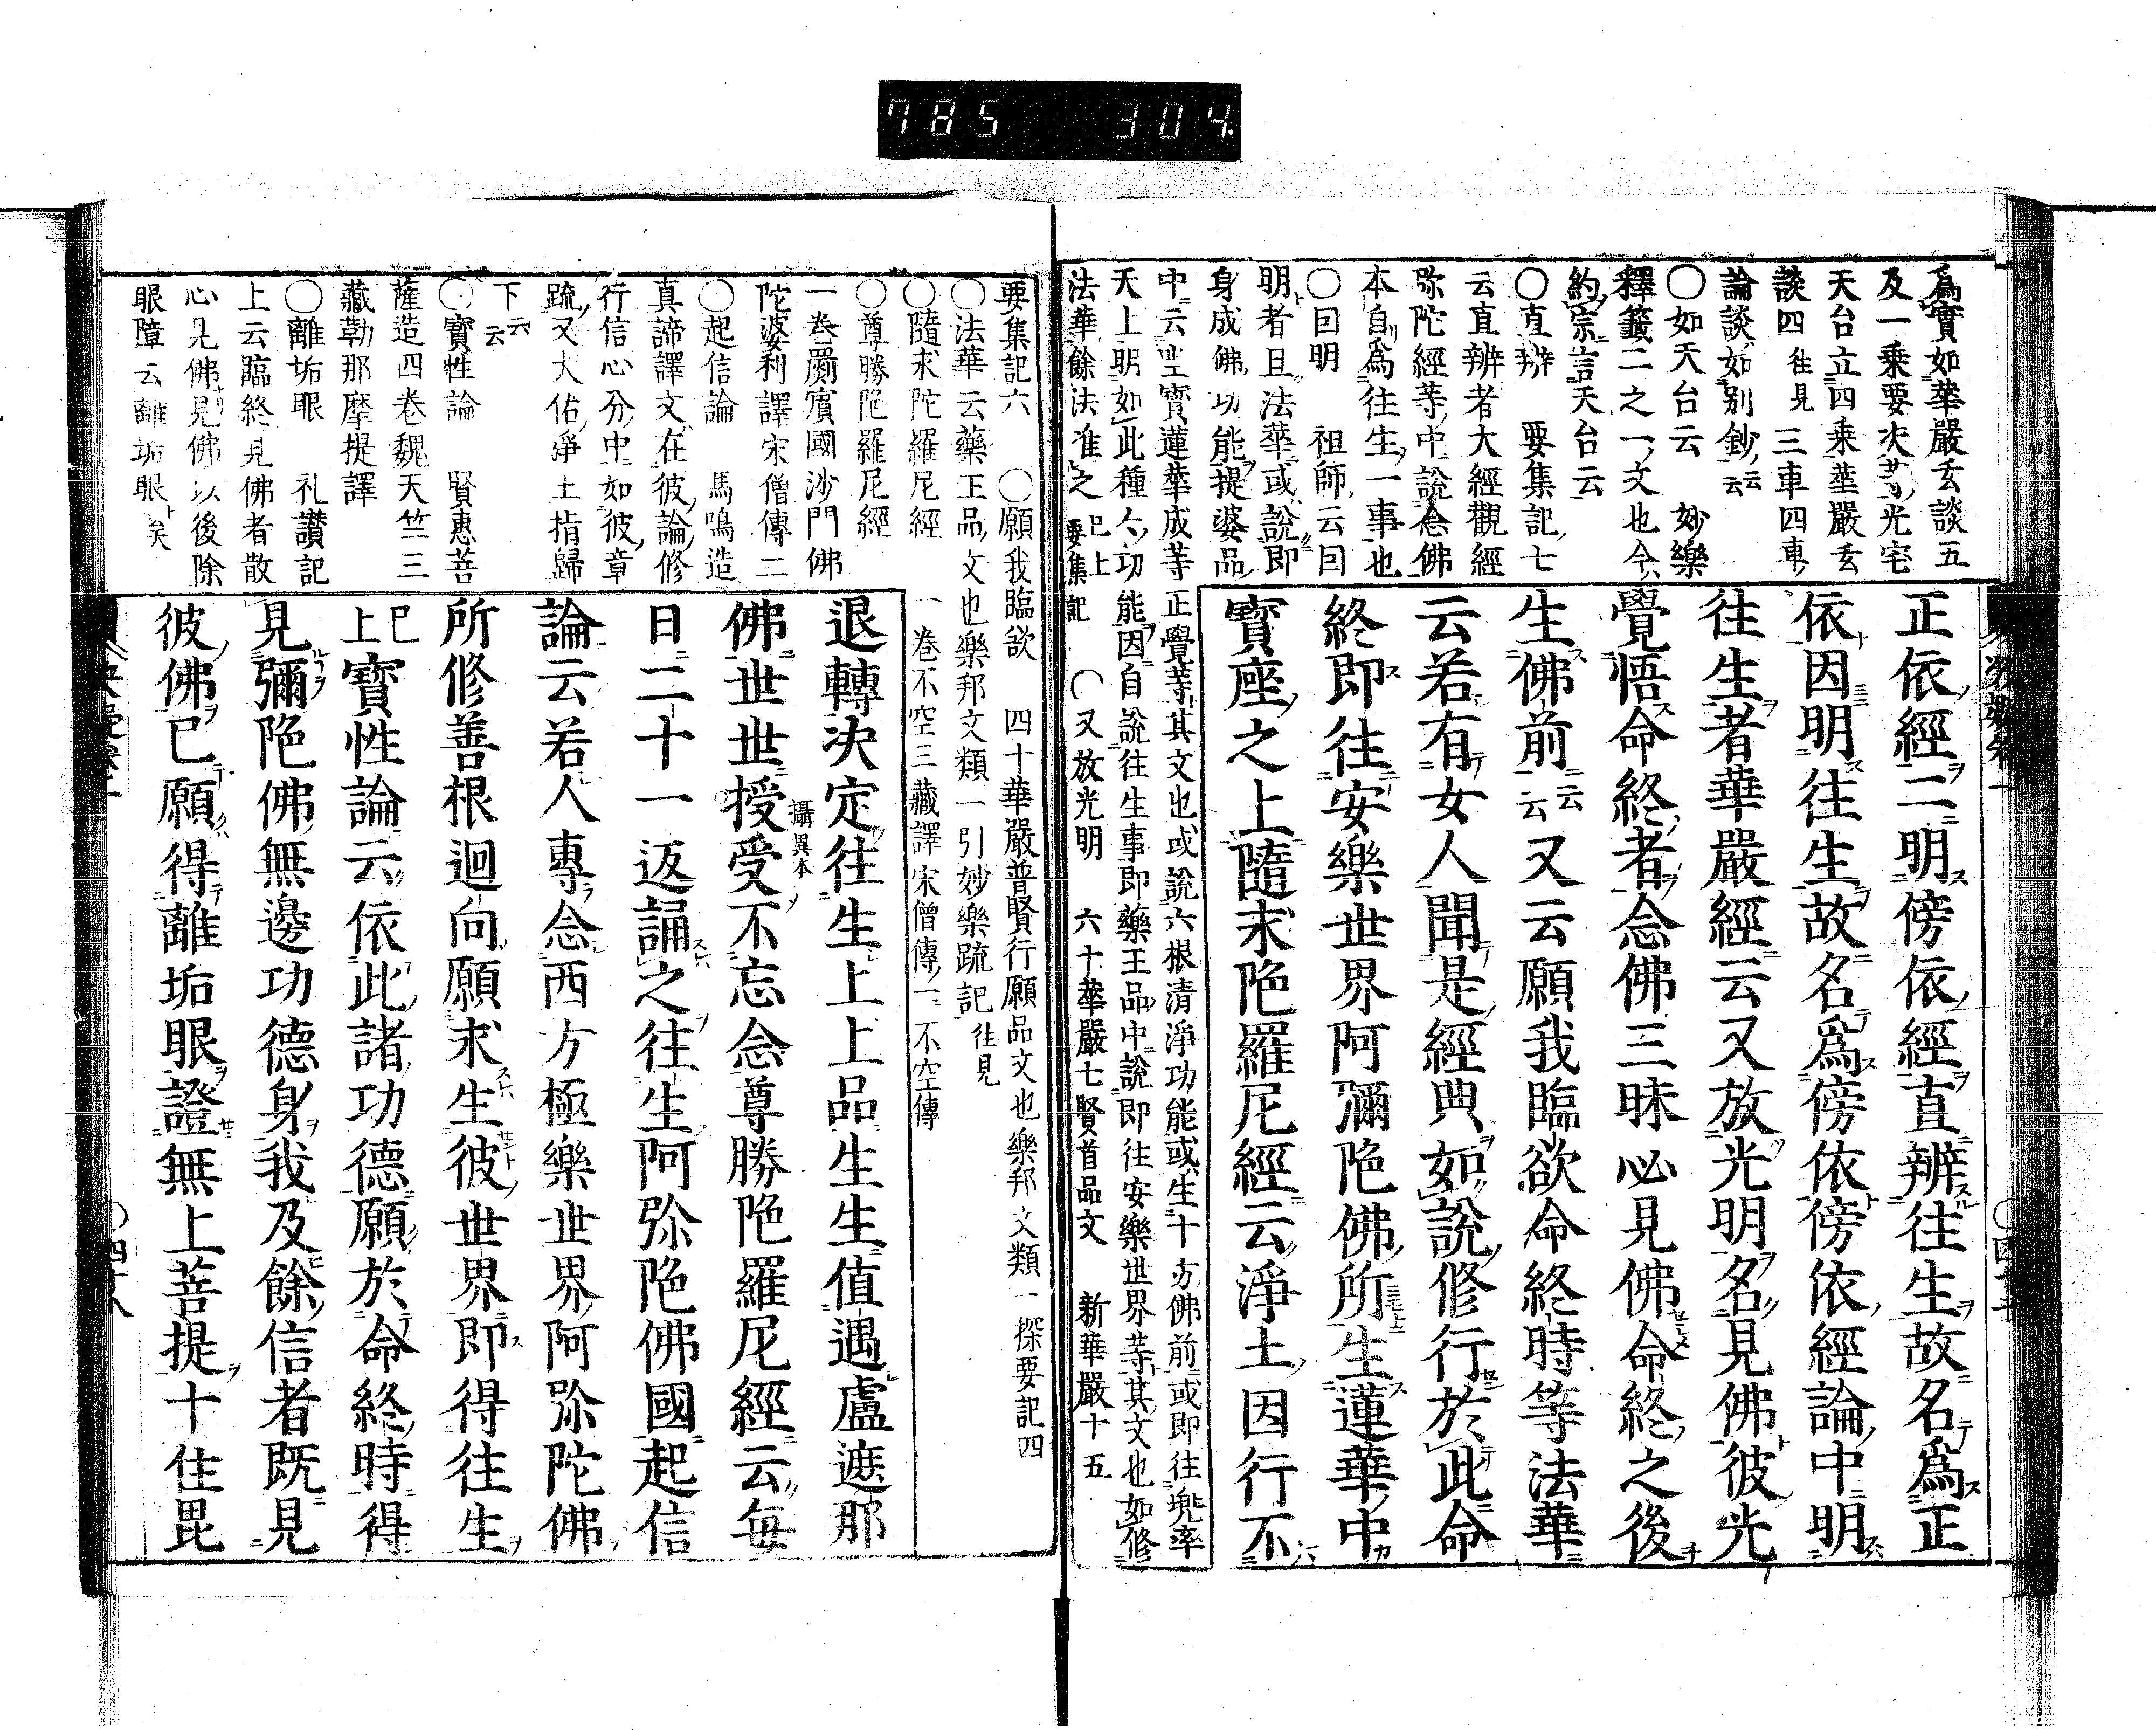 785 304.
爲實如華嚴玄談五
及一乗要决等光宅
天台立四乗華嚴玄
談四往見三車四車
論談如别鈔云云
○如天台云 妙樂
釋籖二之一文也今
約宗言天台云
○直辨 要集記七
云直辨者大經觀經
弥陀經等中說念佛
本自爲往生一事也
○因明 祖師云因
明者且法華或說即
身成佛功能提婆品
中云坐寳蓮華成等正覺等其文也或說六根清淨功能或生十方佛前或即往兜率
天上明如此種々功能因自說往生事即藥王品中說即往安樂世界等其文也如修
法華餘法准之已上要集記 ○又放光明 六十華嚴七賢首品文 新華嚴十五
正依經二明傍依經直辨往生故名爲正
依因明往生故名爲傍依傍依經論中明
往生者華嚴經云又放光明名見佛彼光
覺悟命終者念佛三昧必見佛命終之後
生佛前云云又云願我臨欲命終時等法華
云若有女人聞是經典如說修行於此命
終即往安樂世界阿彌陀佛所生蓮華中
寳座之上隨求陀羅尼經云淨土因行不
要集記六 ○願我臨欲 四十華嚴普賢行願品文也樂邦文類一探要記四
○法華云藥王品文也樂邦文類一引妙樂疏記往見
○隨求陀羅尼經 一卷不空三藏譯宋僧傳一不空傳
○尊勝陀羅尼經
一巻罽賓國沙門佛
陀婆利譯宋僧傳二
○起信論 馬鳴造
真諦譯文在彼論修
行信心分中如彼章
疏又大佑淨土指歸
下云云
○寳性論 賢惠菩
薩造四卷魏天竺三
藏勒那摩提譯
○離垢眼 礼讃記
上云臨終見佛者散
心見佛見佛以後除
眼障云離垢眼矣
退轉决定往生上上品生生值遇盧遮那
佛世世授受不忘念尊勝陀羅尼經云毎
攝異本
日二十一返誦之往生阿弥陀佛國起信
論云若人專念西方極樂世界阿弥陀佛
所修善根迴向願求生彼世界即得往生
已上寳性論云依此諸功德願於命終時得
見彌陀佛無邊功德身我及餘信者既見
彼佛已願得離垢眼證無上菩提十住毘